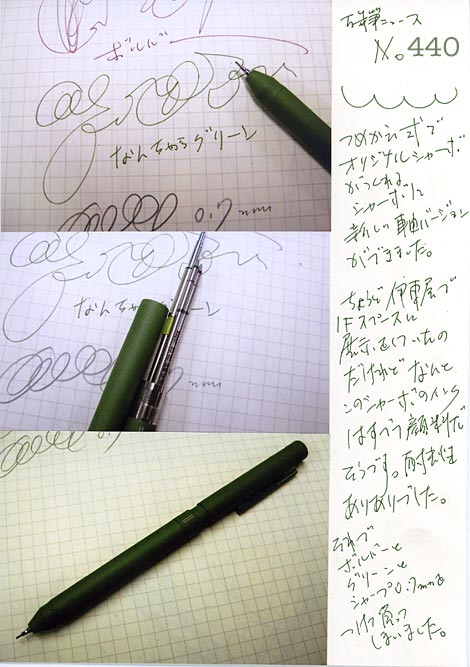 ボルドー
なんちゃらグリーン
0.7mm
なんちゃ
ーン
mm
万年筆ニュース
No.440
つめかえ式で
オリジナルシャーボ
がつくれる
シャーボに
新しい軸バージョン
ができました。
ちょうど伊東屋で
1Fスペースに
展示していたの
だけれど なんと
このシャーボのインク
はすべて顔料だ
そうです。耐水性
ありありでした。
それで
ボルドーと
グリーンと
シャープ0.7mmを
つけて買って
しまいました。